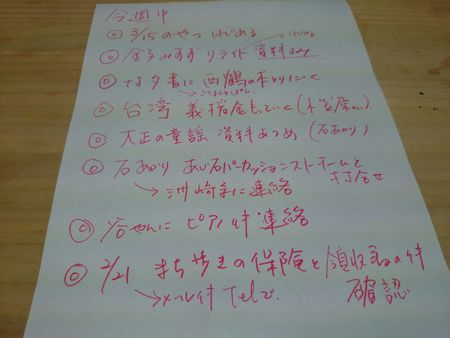 今週中
◎ 3/15のやつ はじめる
◎ 金子みすず リライト 資料よみ
→はじめ
◎ 図書に 西鶴の本とりにいく
◎ 台湾 義援金もっていく(小笠原さん)
◎ 大正の童謡 資料あつめ(石あかり)
◎ 石あかり あじ石パーカッションストームと打合せ
→洲崎寺に連絡
◎ 谷やんに ピアノの件連絡
◎ 2/21 まち歩きの保険と領収書の件
→メール件 Telで. 確認